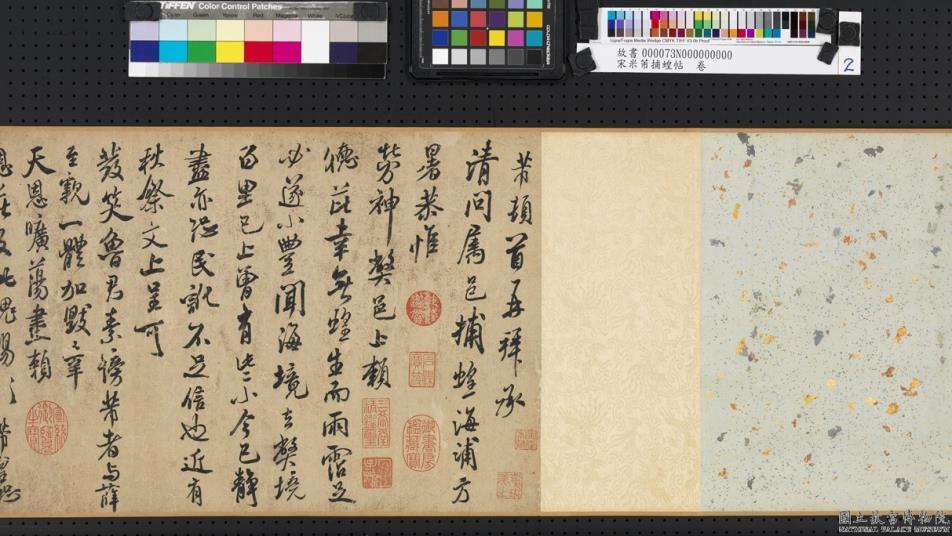 TIFFEN Color Control Patches
故書 000073N000000000
宋米芾捕蝗帖 卷
2
芾頓首再拜承
清問屬邑捕蝗海浦方
暑恭惟
勞神 弊邑上賴
德芘幸無蝗生而雨露足
必遂小豐聞海境去弊境
百里已上曾有些小今已靜
盡亦恐民訛不足信也近有
秋祭文上呈可
發笑魯君素謗芾者与薛
至親一體加毀之辜
天恩曠蕩盡賴
國立故宮博物院
NATIONAL PALACE MUSEUM